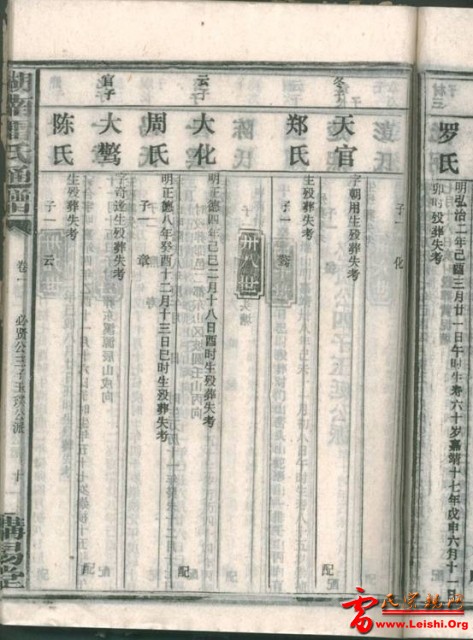 罗氏
明弘治二年己酉三月廿一日午时生寿六十岁嘉靖十七年戊申六月十一日
卯时殁葬失考
子一 化
冬子
天官
字朝用生殁葬失考
配
郑氏
生殁葬失考
子一
卅八世
云子
大化
明正德四年己巳二月十八日酉时生殁葬失考
配
周氏
明正德八年癸酉十二月十三日巳时生殁葬失考
子一 章
官子
大
字奇逢生殁葬失考
配
陈氏
生殁葬失考
子一 云
湖南雷氏通谱
卷一
必贤公三子玉 公派
十
讲易堂
雷氏宗亲网
www.Leishi.Org